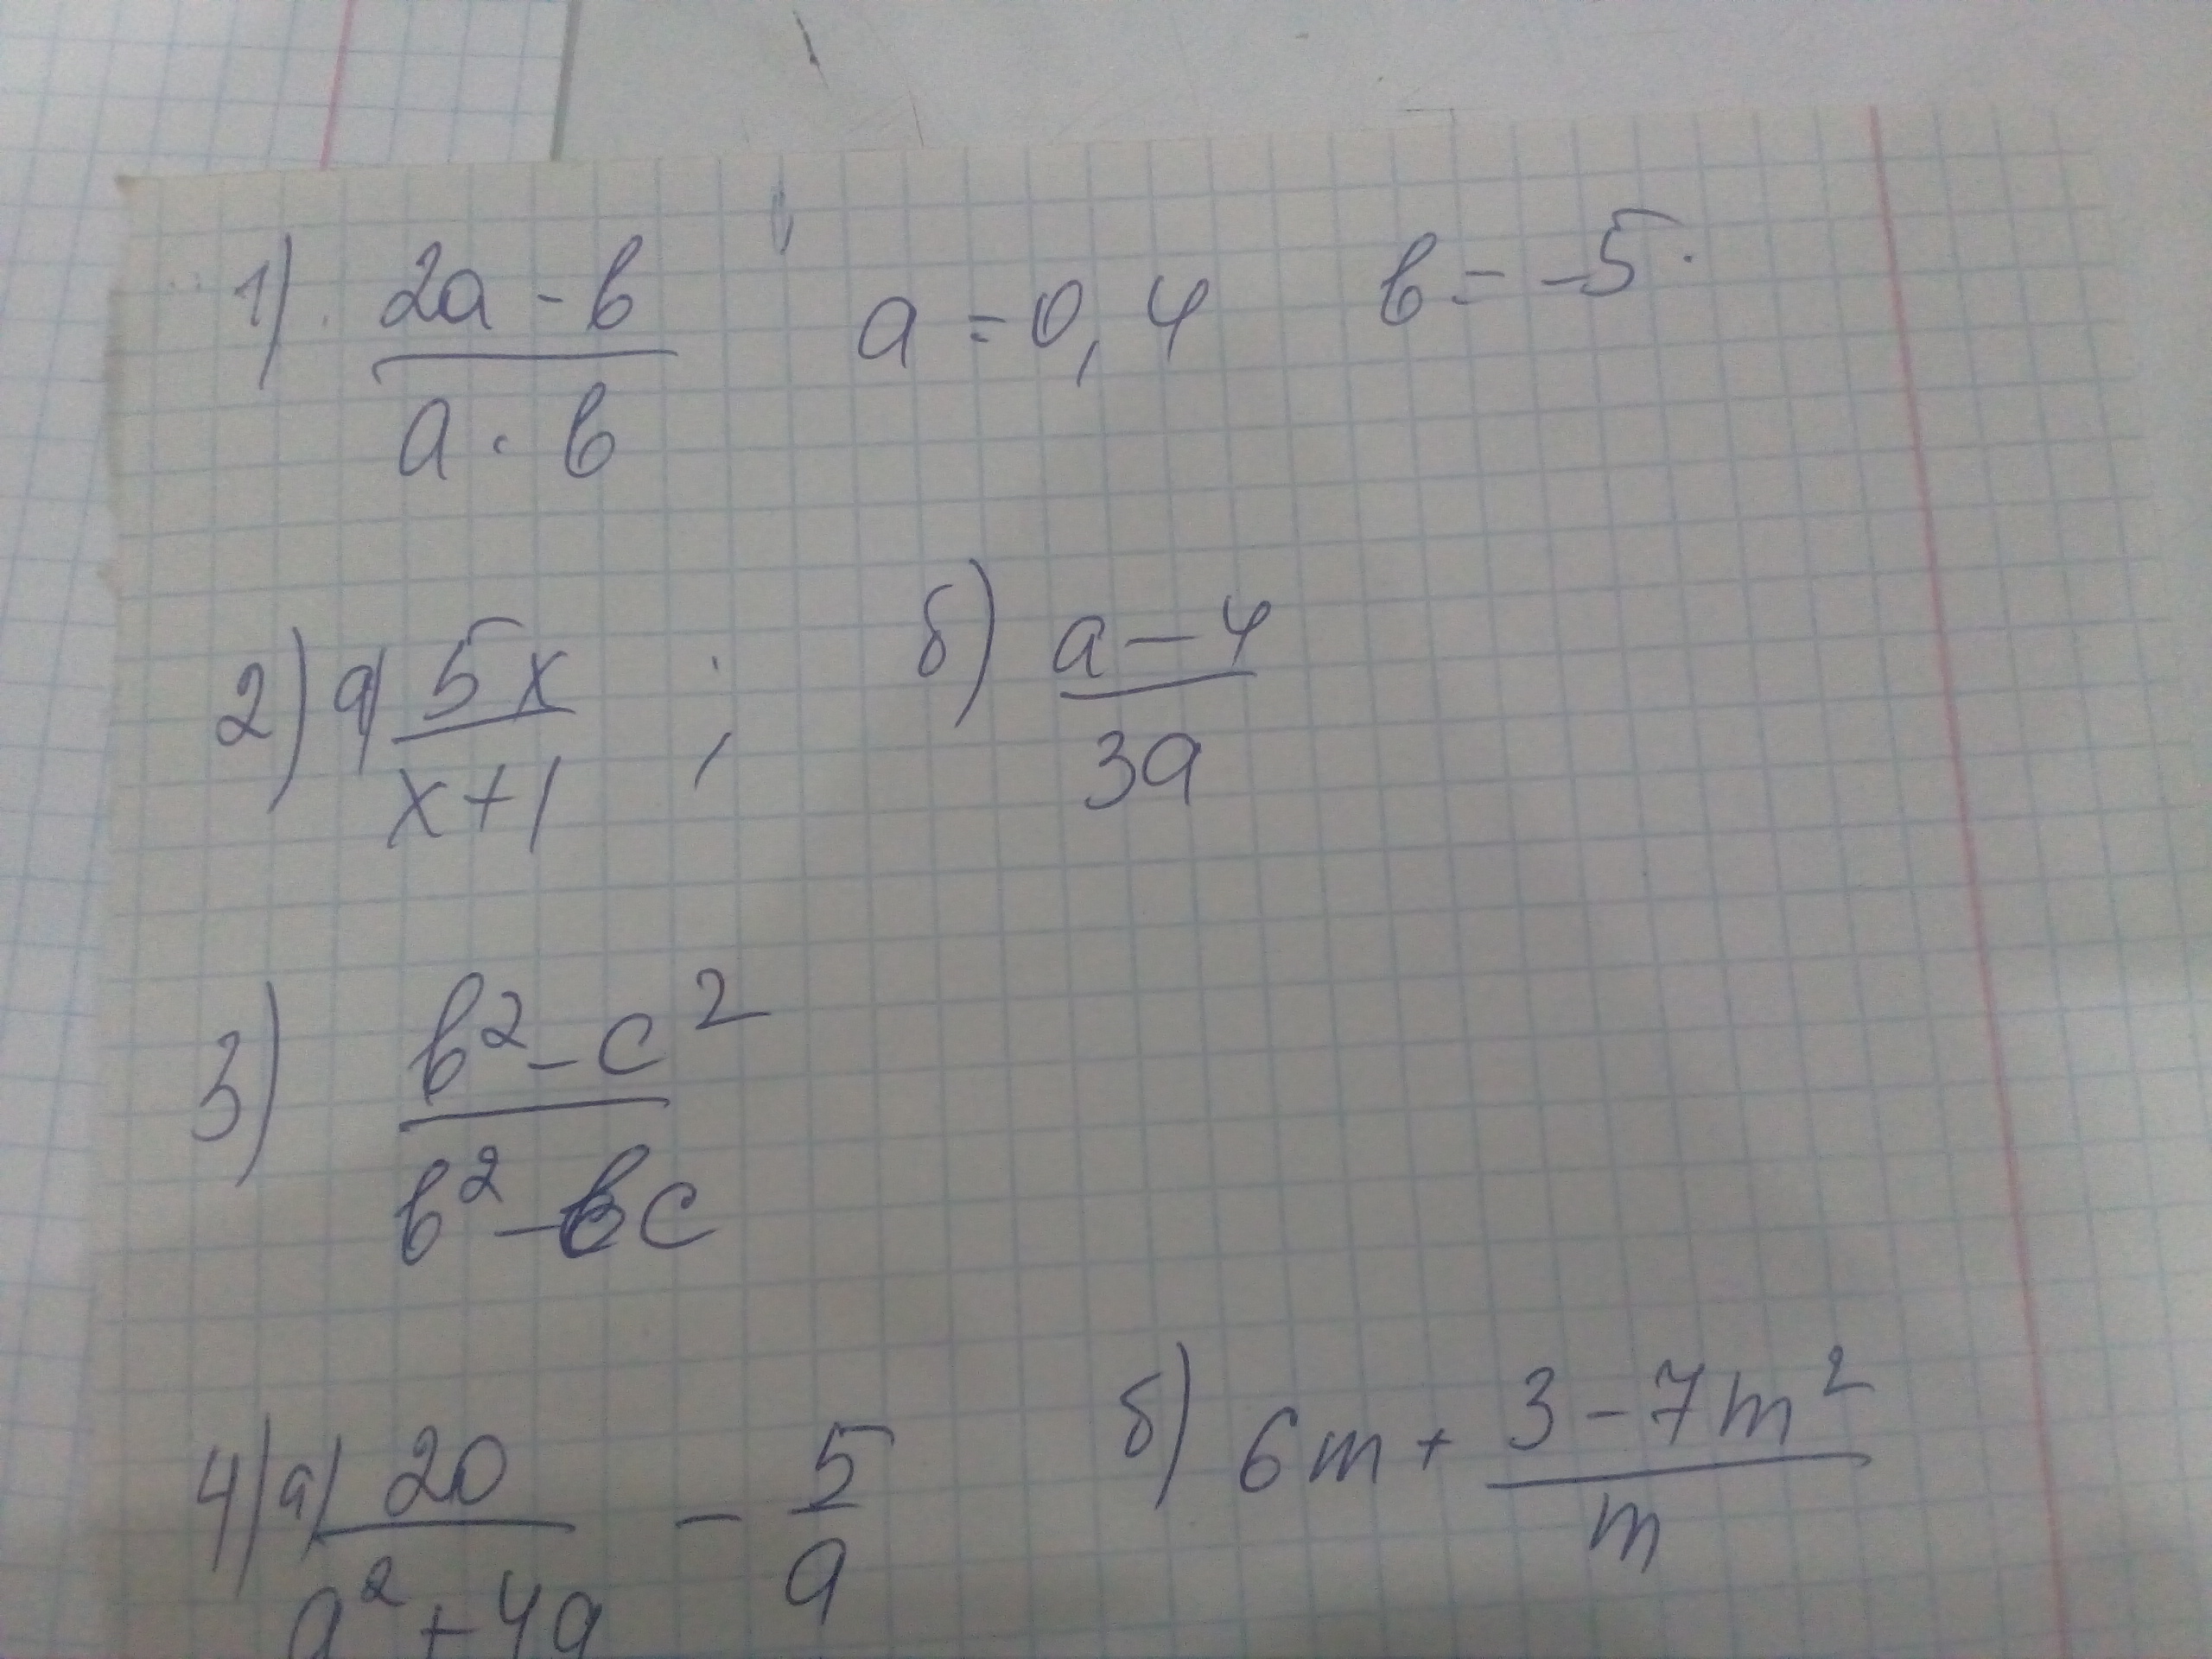 1) (2a - b)/(a · b) a = 0,4 b = -5.
2) а) 5x/(x+1) ; б) (a-4)/(3a)
3) (b² - c²)/(b² - bc)
4) а) 20/(a² + 4a) - 5/a б) 6m + (3 - 7m²)/m